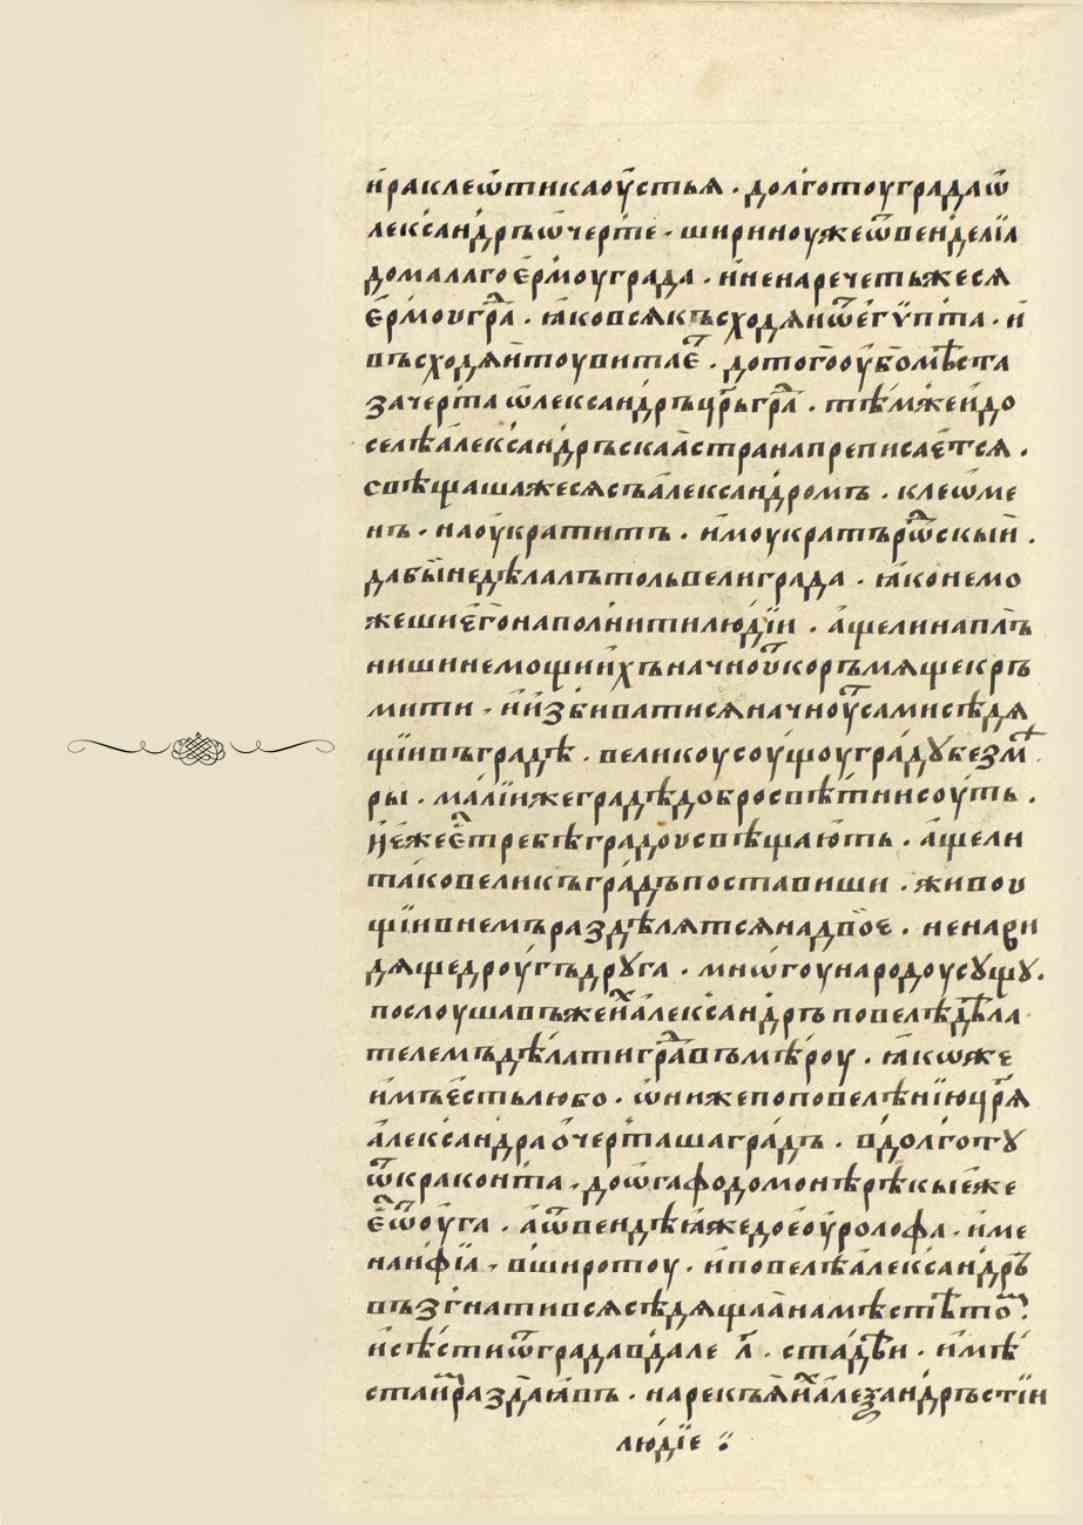 и҆раклеѡ҆тикаоу҆стьѧ . долготоуградаѿ
леѯандръѡ҆черте . шириноужеѿвенделіл
домалагоермоуграда . и҆ненаречетьжесѧ
ермоугра . ꙗковсѧкъсходѧиѿегѵпта . и
въсходѧитоувитае . дотогооубомѣста
зачертаѡ҆лександръцрьгра . тѣмжеидо
селѣалександръскаастранапреписаетсѧ .
свѣщашажесѧсъалександромъ . клеѡме
нъ . наоукратитъ . имоукратърѡскыи .
дабыинедѣлалътольвелиграда . ꙗконемо
жешиегонаполнитилюдіи . ащелинаплъ
нишинемощниихъначноукоръмѧщекръ
мити . иизбиватисѧначноусамисѣдѧ
щіивъградѣ . великоусоущоуградꙋбезмѣ
ры . маліижеградѣдобросвѣтнисоуть .
нежеетребѣградоусвѣщають . ащели
таковеликъградъпоставиши . живоу
щіивнемъраздѣлѧтсѧнадвое . ненави
дѧщедроугъдрꙋга . мнѡгоународоусꙋщꙋ .
послоушавъжеиалександръповелѣдѣла
телемъдѣлатиградвъмѣроу . ꙗкѡже
имъестьлюбо . ѡнижепоповелѣніюцрѧ
александраочерташаградъ . вдолготꙋ
ѿкраконта . доѡгафодомонѣрѣкыеже
еѿоуга . аѿвендѣꙗжедоеоуролофа . име
нанфіа . вширотоу . иповелѣалександръ
възгнативсѧсѣдѧщаанамѣстѣто .
исѣстиѿградавдале л . стадѣи . имѣ
стаираздаꙗвъ . нарекъѧиалеѯандръстіи
людіе :